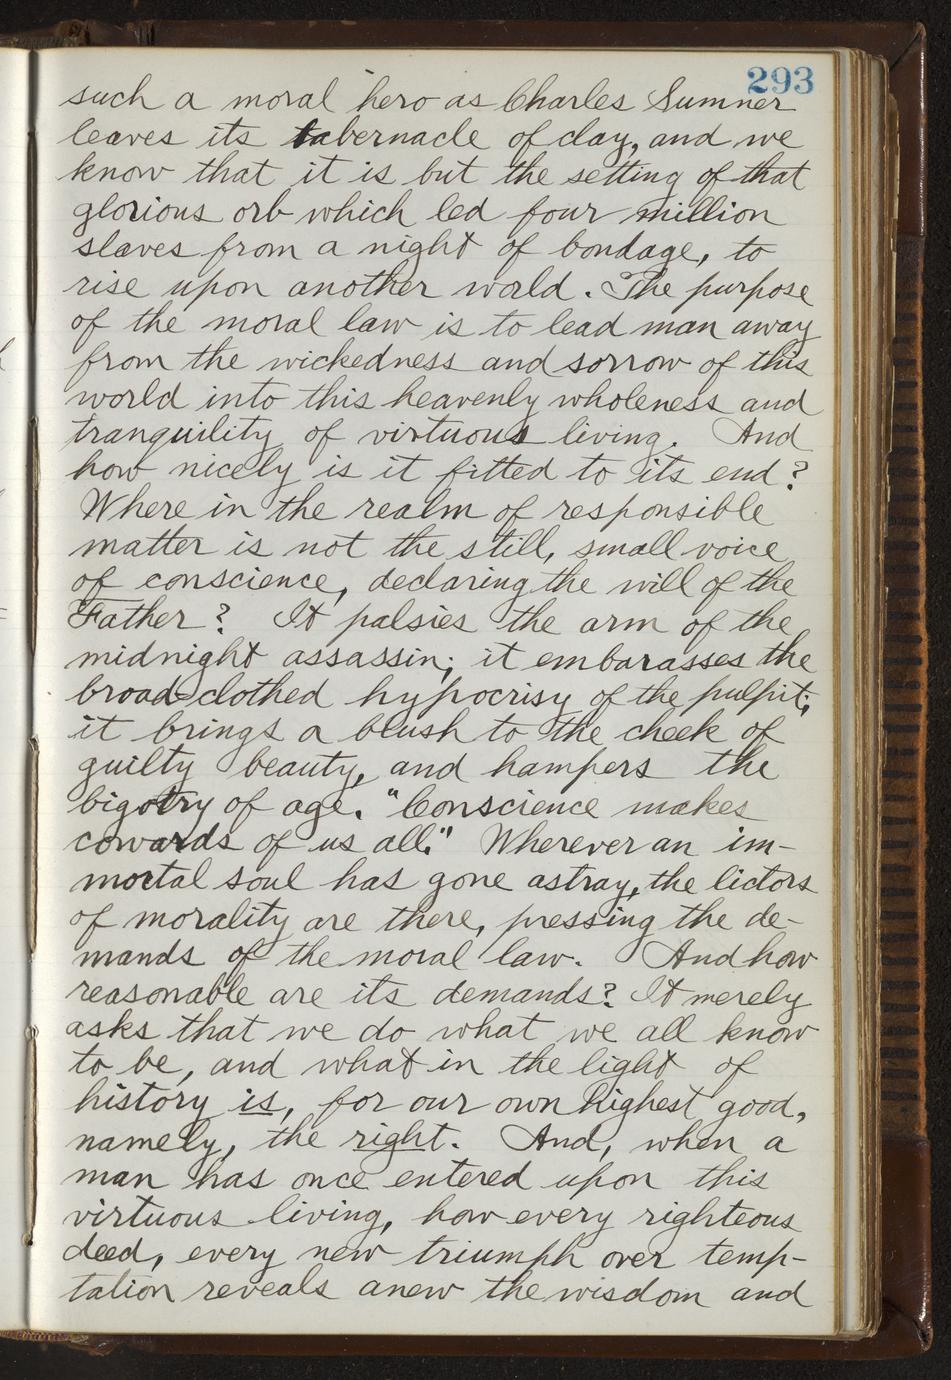 293
such a moral hero as Charles Sumner
leaves its tabernacle of clay, and we
know that it is but the setting of that
glorious orb which led four million
slaves from a night of bondage, to
rise upon another world. The purpose
of the moral law is to lead man away
from the wickedness and sorrow of this
world into this heavenly wholeness and
tranquility of virtuous living. And
how nicely is it fitted to its end?
Where in the realm of responsible
matter is not the still, small voice
of conscience, declaring the will of the
Father? It palsies the arm of the
midnight assassin; it embarasses the
broad-clothed hypocrisy of the pulpit;
it brings a blush to the cheek of
guilty beauty, and hampers the
bigotry of age. "Conscience makes
cowards of us all." Wherever an im-
mortal soul has gone astray, the lictors
of morality are there, pressing the de-
mands of the moral law. And how
reasonable are its demands? It merely
asks that we do what we all know
to be, and what in the light of
history is, for our own highest good,
namely, the right. And, when a
man has once entered upon this
virtuous living, how every righteous
deed, every new triumph over temp-
tation reveals anew the wisdom and